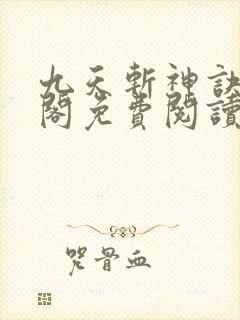 九天斬神訣
閣免費閱讀
咒骨血